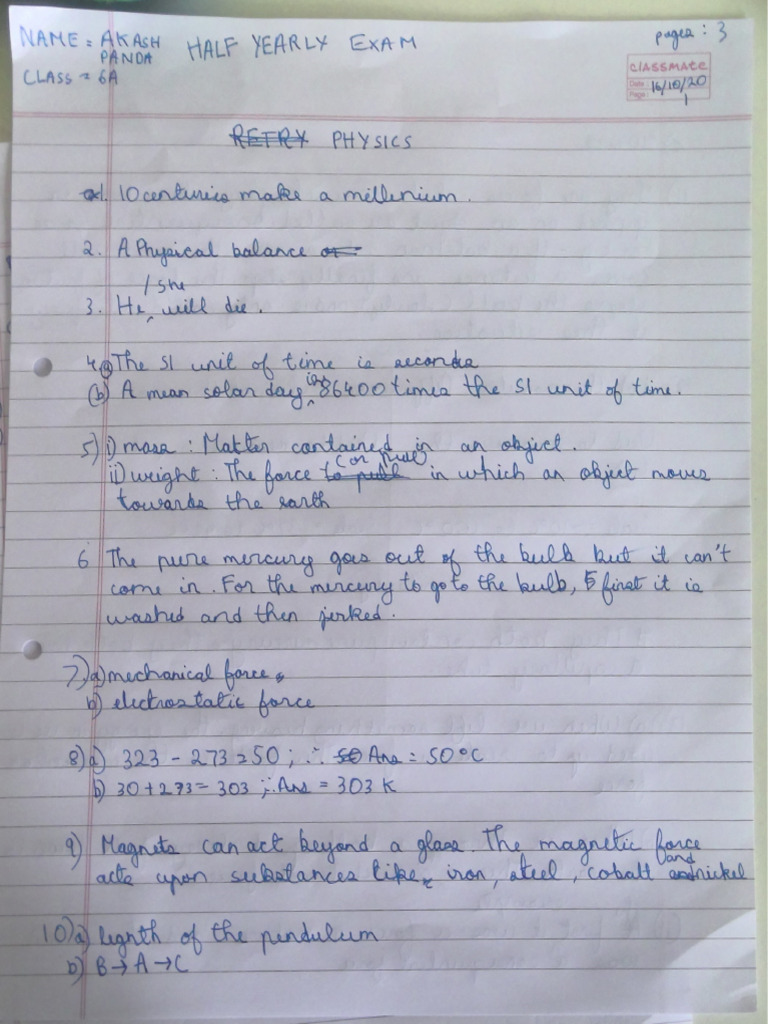 NAME = AKASH PANDA
HALF YEARLY EXAM
pages : 3
CLASS = 6A
CLASSMATE
Date 16/10/20
Page 1
RETRY PHYSICS
1. 10 centuries make a millenium.
2. A Physical balance
/ she
3. He, will die.
4 a) The SI unit of time is seconds
(b) A mean solar day is 86400 times the SI unit of time.
5) i) mass : Matter contained in an object.
(or pull)
ii) weight : The force to pull in which an object moves
towards the earth
6 The pure mercury goes out of the bulb but it can't
come in. For the mercury to go to the bulb, first it is
washed and then jerked.
7) a) mechanical force
b) electrostatic force
8) a) 323 - 273 = 50 ; ∴ 50 Ans = 50°C
b) 30 + 273 = 303 ; ∴ Ans = 303 K
9) Magnets can act beyond a glass. The magnetic force
acts upon substances like iron, steel, cobalt and nickel
10) a) legnth of the pendulum
b) B → A → C